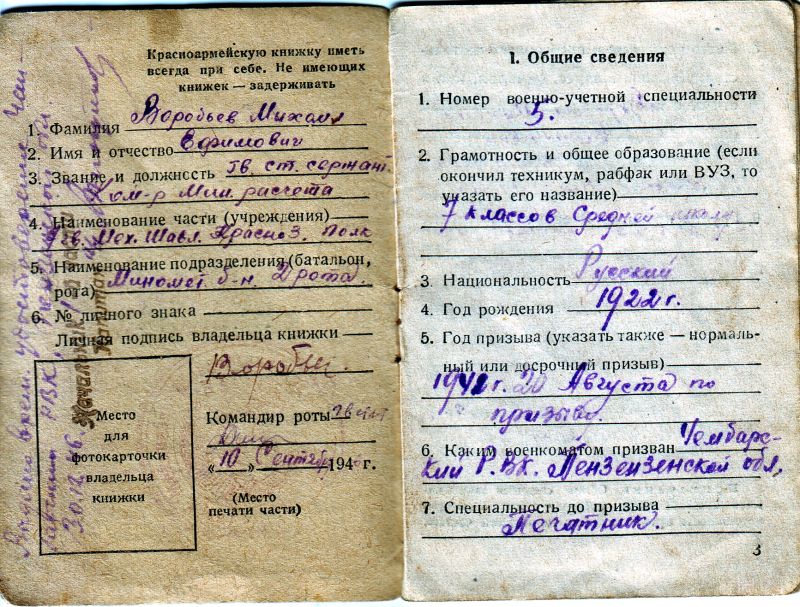 Красноармейскую книжку иметь
всегда при себе. Не имеющих
книжек — задерживать
1. Фамилия Воробьев Михаил
2. Имя и отчество Ефимович
3. Звание и должность гв. ст. сержант
Ком-р Мин. расчета
4. Наименование части (учреждения)
Гв. Мех. Шавл. Красноз. Полк
5. Наименование подразделения (батальон,
рота) Миномет. б-н.
6. № личного знака
Личная подпись владельца книжки
Воробьев.
Место
для
фотокарточки
владельца
книжки
Командир роты
„10" Сентябр 194 г.
(Место
печати части)
РВК
30.12.46.
1. Общие сведения
1. Номер военно-учетной специальности
5.
2. Грамотность и общее образование (если
окончил техникум, рабфак или ВУЗ, то
указать его название)
7 классов Средней школы
3. Национальность Русский
4. Год рождения 1922 г.
5. Год призыва (указать также — нормаль-
ный или досрочный призыв)
1941 г. 20 Августа по
призыву.
6. Каким военкоматом призван Чембарс-
ким Р.В.К. Пензензенской обл,
7. Специальность до призыва
Печатник.
3